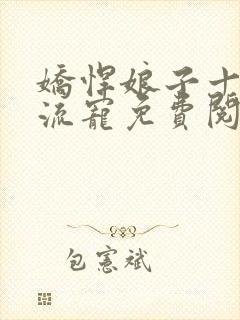 嬌悍娘子十
流寵免費閱
包憲斌